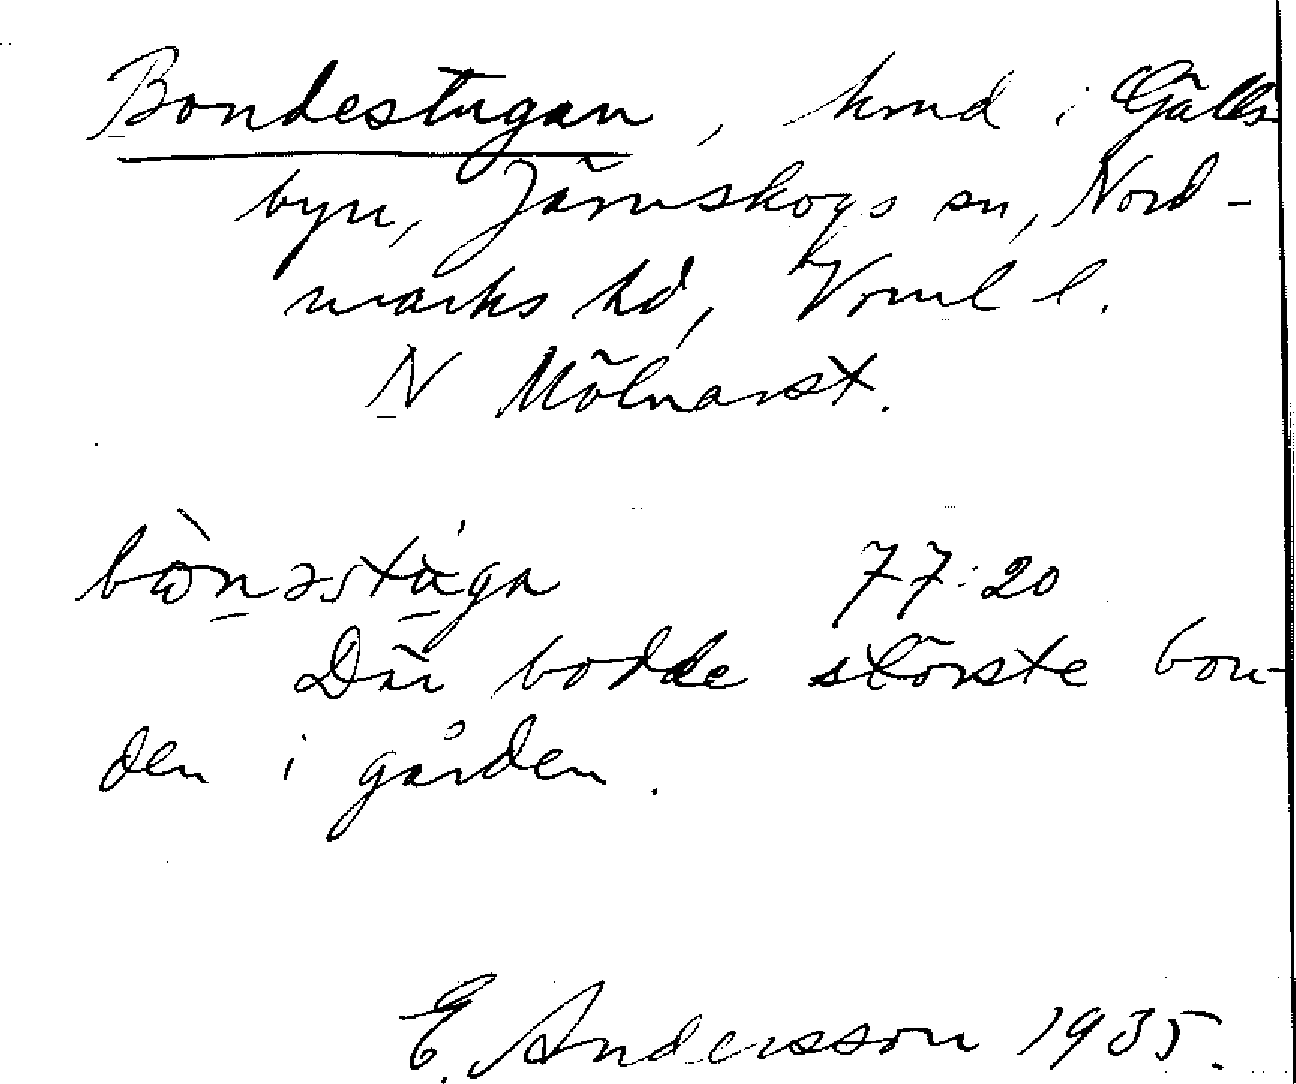 Bondestugan, hmd i Gälls-
byn, Järnskogs sn, Nord-
marks hd, Vrml l.
N Mölnarst.
bɷ̀nəstùga 77:20
Där bodde störste bon-
den i gården.
E. Andersson 1935.